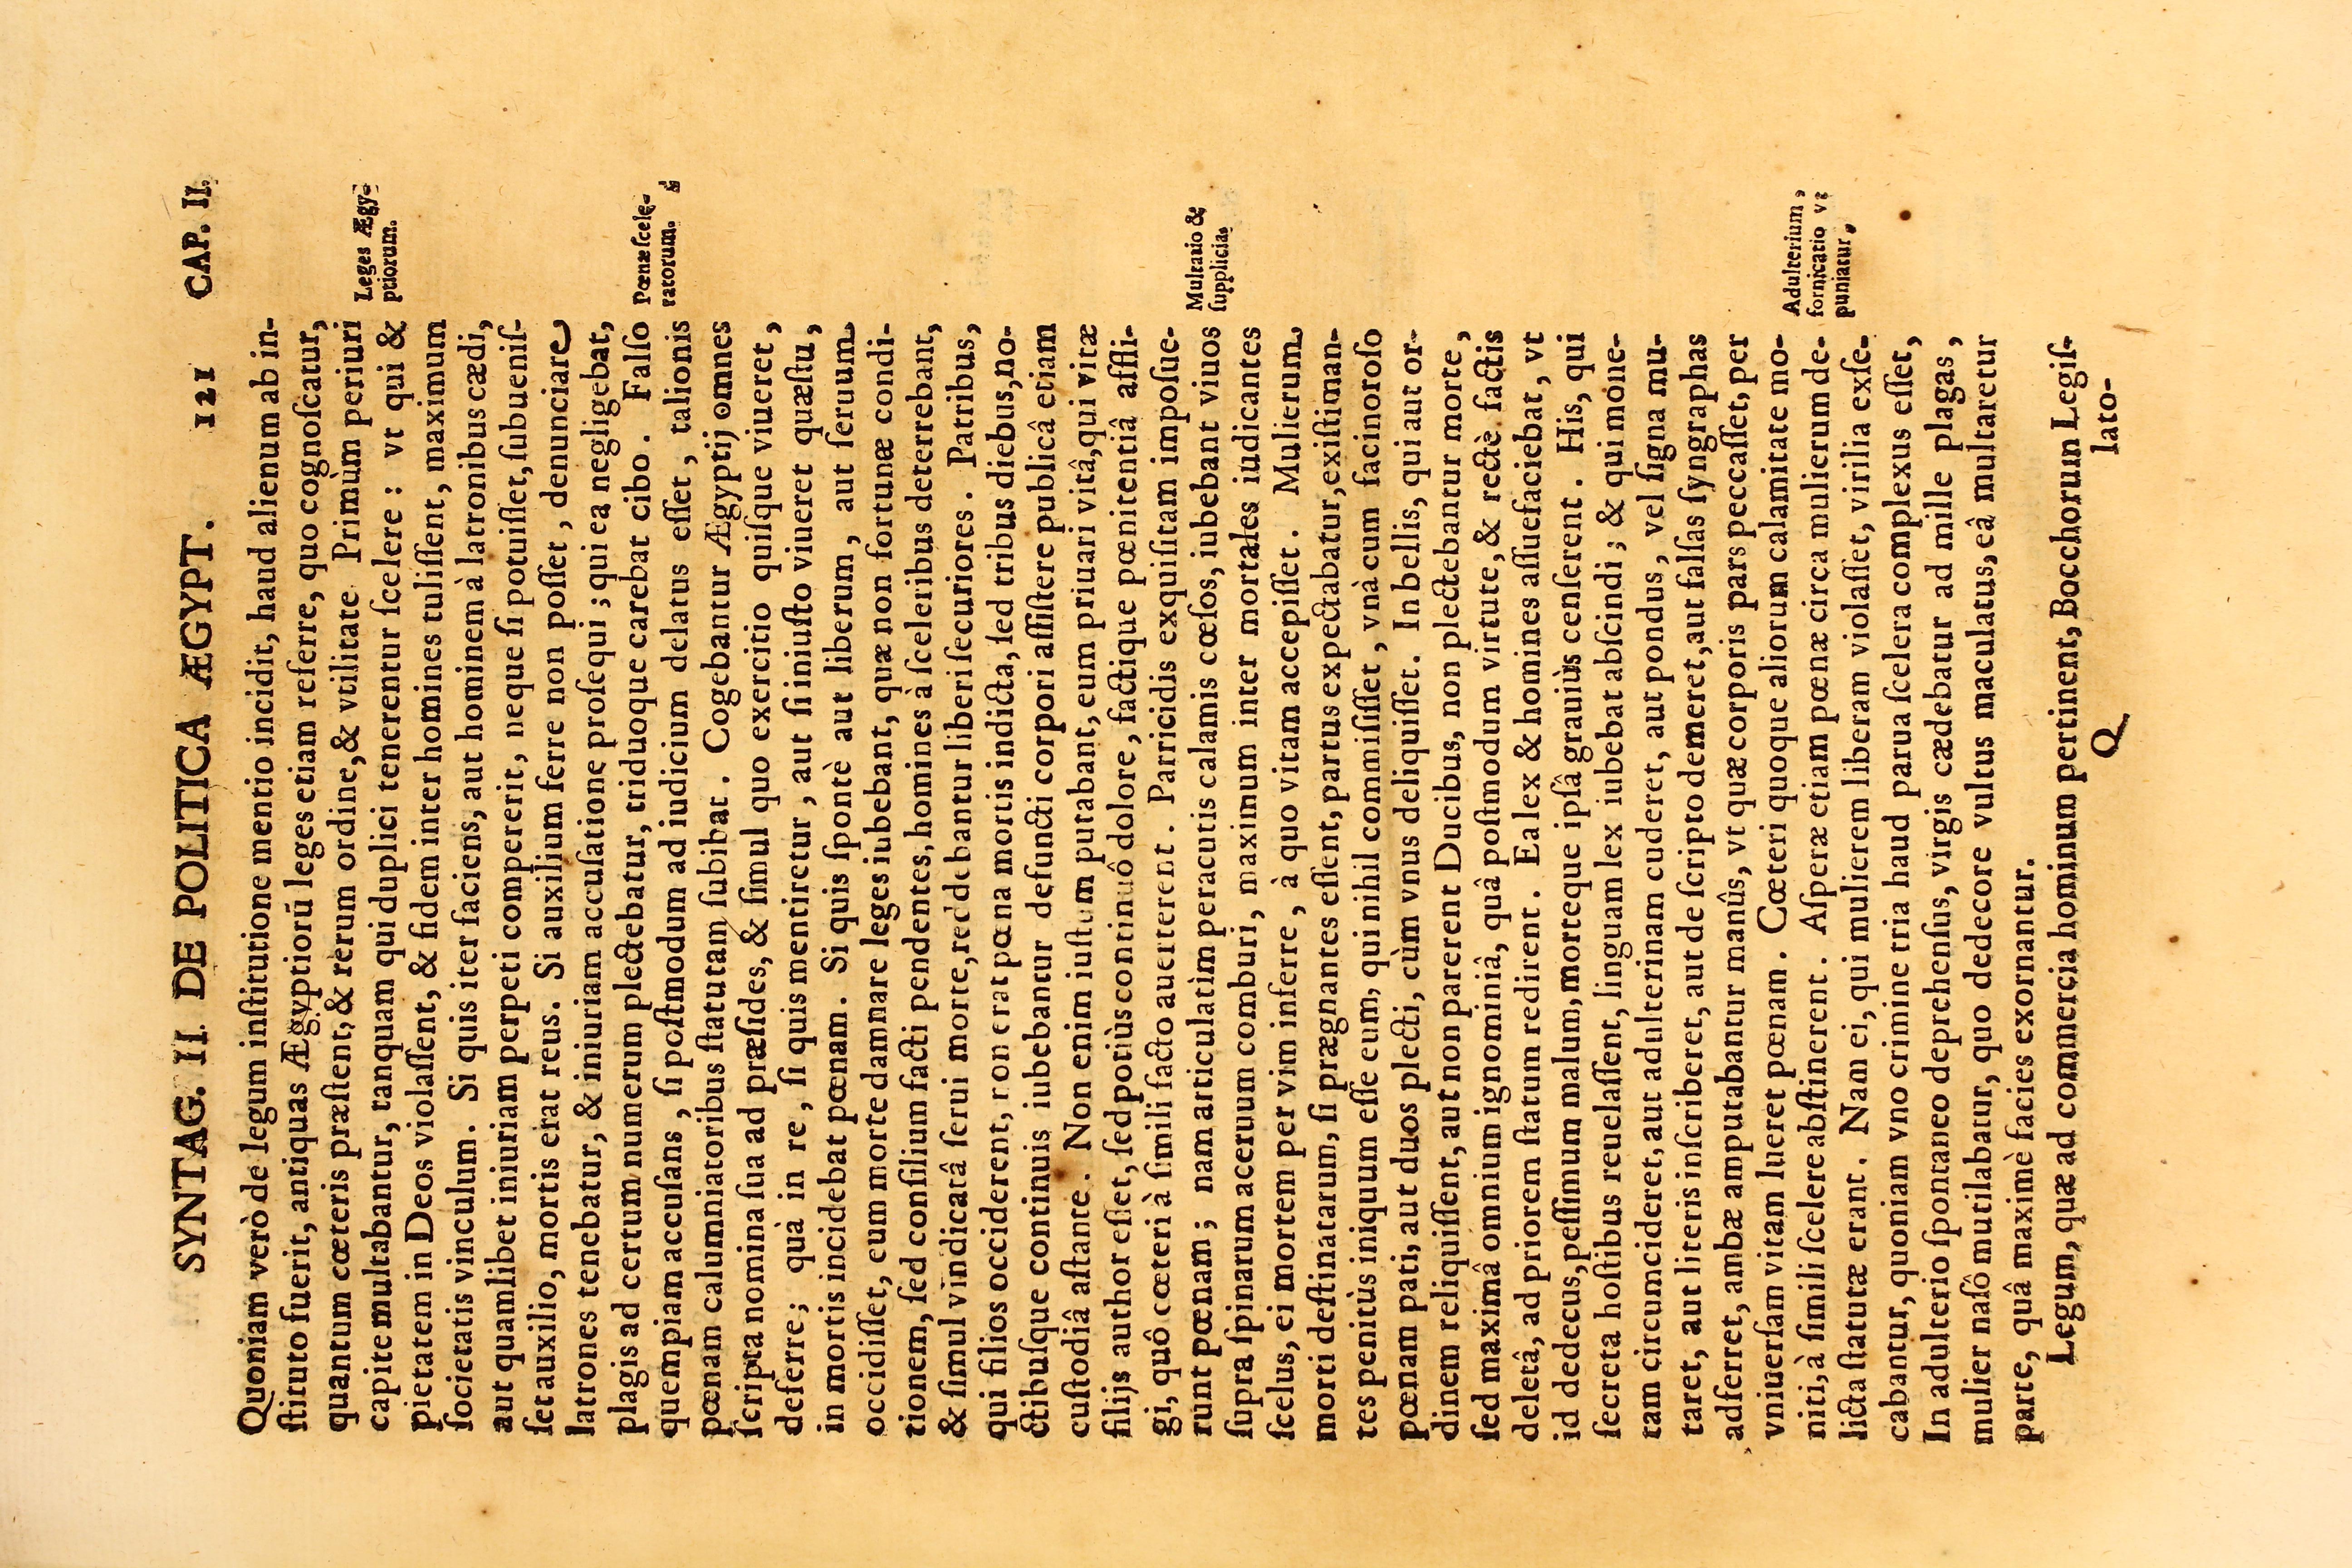 SYNTAG. II. DE POLITICA ÆGYPT. 121 CAP. II.
Quoniam verò de legum inſtitutione mentio incidit, haud alienum ab in-
ſtituto fuerit, antiquas Ægyptiorũ leges etiam referre, quo cognoſcatur,
quantum cœteris præſtent, & rerum ordine, & vtilitate. Primùm periuri
Leges Ægy-
ptiorum.
capite multabantur, tanquam qui duplici tenerentur ſcelere : vt qui &
pietatem in Deos violaſſent, & fidem inter homines tuliſſent, maximum
ſocietatis vinculum. Si quis iter faciens, aut hominem à latronibus cædi,
aut quamlibet iniuriam perpeti compererit, neque ſi potuiſſet, ſubueniſ-
ſet auxilio, mortis erat reus. Si auxilium ferre non poſſet, denunciare
latrones tenebatur, & iniuriam accuſatione proſequi ; qui ea negligebat,
plagis ad certum numerum plectebatur, triduoque carebat cibo. Falſo
Pœnæ ſcele-
ratorum.
quempiam accuſans, ſi poſtmodum ad iudicium delatus eſſet, talionis
pœnam calumniatoribus ſtatutam ſubibat. Cogebantur Ægyptij omnes
ſcripta nomina ſua ad præſides, & ſimul quo exercitio quiſque viueret,
deferre; quà in re, ſi quis mentiretur, aut ſi iniuſto viueret quæſtu,
in mortis incidebat pœnam. Si quis ſpontè aut liberum, aut ſeruum
occidiſſet, eum morte damnare leges iubebant, quæ non fortunæ condi-
tionem, ſed conſilium facti pendentes, homines à ſceleribus deterrebant,
& ſimul vindicatâ ſerui morte, reddebantur liberi ſecuriores. Patribus,
qui filios occiderent, non erat pœna mortis indicta, ſed tribus diebus, no-
ctibuſque continuis iubebantur defuncti corpori aſſiſtere publicâ etiam
cuſtodiâ aſtante. Non enim iuſtum putabant, eum priuari vitâ, qui vitæ
filijs author eſſet, ſed potiùs continuô dolore, factique pœnitentiâ affli-
gi, quô cœteri à ſimili facto auerterent. Parricidis exquiſitam impoſue-
runt pœnam; nam articulatim peracutis calamis cœſos, iubebant viuos
Multatio &
ſupplicia.
ſupra ſpinarum aceruum comburi, maximum inter mortales iudicantes
ſcelus, ei mortem per vim inferre, à quo vitam accepiſſet. Mulierum
morti deſtinatarum, ſi prægnantes eſſent, partus expectabatur, exiſtiman-
tes penitùs iniquum eſſe eum, qui nihil commiſiſſet, vnà cum facinoroſo
pœnam pati, aut duos plecti, cùm vnus deliquiſſet. In bellis, qui aut or-
dinem reliquiſſent, aut non parerent Ducibus, non plectebantur morte,
ſed maximâ omnium ignominiâ, quâ poſtmodum virtute, & rectè factis
deletâ, ad priorem ſtatum redirent. Ea lex & homines aſſuefaciebat, vt
id dedecus, peſſimum malum, morteque ipſâ grauiùs cenſerent. His, qui
ſecreta hoſtibus reuelaſſent, linguam lex iubebat abſcindi; & qui mone-
tam circumcideret, aut adulterinam cuderet, aut pondus, vel ſigna mu-
taret, aut literis inſcriberet, aut de ſcripto demeret, aut falſas ſyngraphas
adferret, ambæ amputabantur manûs, vt quæ corporis pars peccaſſet, per
vniuerſam vitam lueret pœnam. Cœteri quoque aliorum calamitate mo-
niti, à ſimili ſcelere abſtinerent. Aſperæ etiam pœnæ circa mulierum de-
Adulterium,
fornicatio vt
puniatur.
licta ſtatutæ erant. Nam ei, qui mulierem liberam violaſſet, virilia exſe-
cabantur, quoniam vno crimine tria haud parua ſcelera complexus eſſet,
In adulterio ſpontaneo deprehenſus, virgis cædebatur ad mille plagas,
mulier naſô mutilabatur, quo dedecore vultus maculatus, eâ multaretur
parte, quâ maximè facies exornantur.
Legum, quæ ad commercia hominum pertinent, Bocchorum Legiſ-
Q lato-